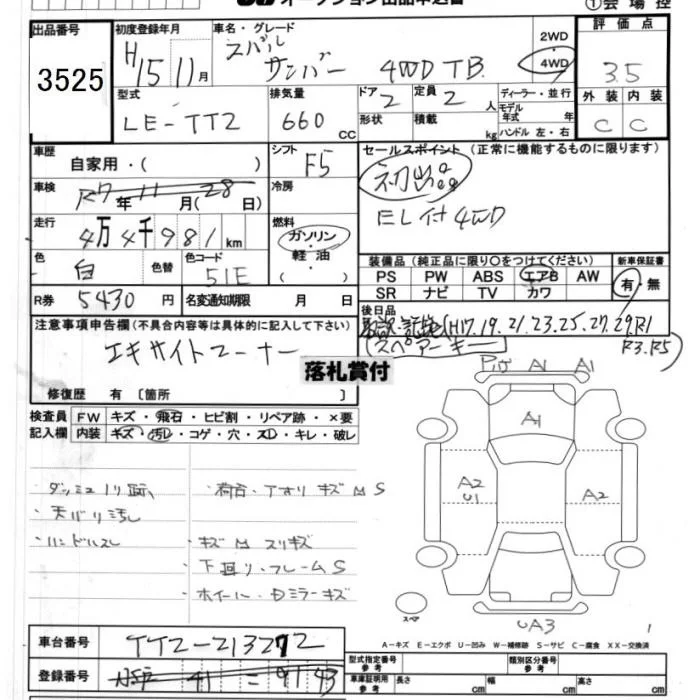 オークション出品申込書
①会場控
出品番号 3525
初度登録年月 H15年 11月
車名・グレード スバル サンバー 4WD TB
2WD
4WD
評価点 3.5
型式 LE-TT2
排気量 660 CC
ドア 2
形状
定員 2 人
積載 kg
ディーラー・並行
モデル年式 年
ハンドル 左・右
外装 内装
C C
車歴 自家用・( )
シフト F5
セールスポイント (正常に機能するものに限ります)
初出品
EL付 4WD
車検 R7年 11月(28日)
冷房
走行 4万4千981km
燃料 ガソリン・軽油・( )
色 白 色替
色コード 51E
装備品 (純正品に限り○をつけてください)
新車保証書
PS PW ABS エアB AW
SR ナビ TV カワ
有・無
R券 5430円
名変通知期限 月 日
後日品
取説、記録簿(H17.19.21.23.25.27.29.R1
R3.R5)
スペアーキー
注意事項申告欄 (不具合内容等は具体的に記入して下さい)
エキサイトコーナー
落札賞付
修復歴 有 〔箇所 〕
検査員 FW キズ・飛石・ヒビ割・リペア跡・×要
記入欄 内装 キズ・汚レ・コゲ・穴・スレ・キレ・破レ
A1 A1
A1
A2
U1
A2
UA3
スペア
・ダッシュノリ跡
・天バリ汚レ
・ハンドルスレ
・荷台・アオリ キズ M S
・キズ M スリキズ
・下回り・フレーム S
・ホイール・Dミラーキズ
A-キズ E-エクボ U-凹み W-補修跡 S-サビ C-腐食 XX-交換済
車台番号 TT2-213272
登録番号 41 = 9143
型式指定番号 参考
類別区分番号 参考
車庫証明用 参考 長さ cm 幅 cm 高さ cm